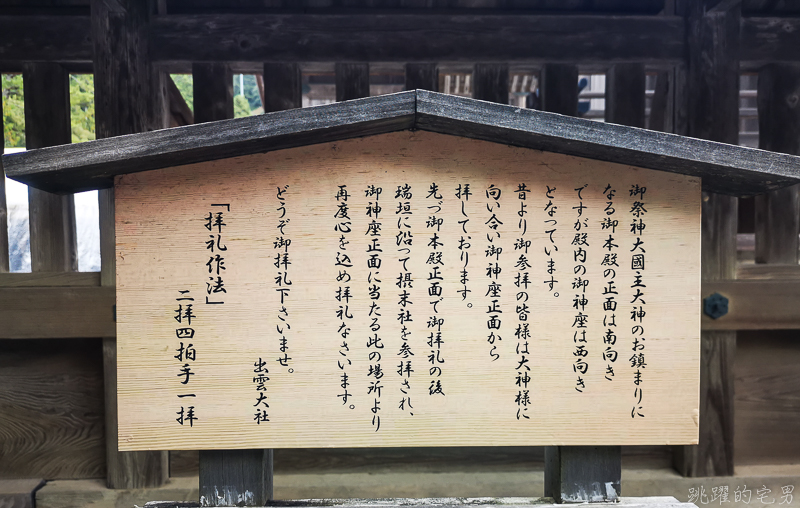 御祭神大國主大神のお鎮まりに
なる御本殿の正面は南向き
ですが殿内の御神座は西向き
となっています。
昔より御参拝の皆様は大神様に
向い合い御神座正面から
拝しております。
先づ御本殿正面で御拝礼の後
瑞垣に沿って摂末社を参拝され、
御神座正面に当たる此の場所より
再度心を込め拝礼なさいます。
どうぞ御拝礼下さいませ。
出雲大社
「拝礼作法」
二拝四拍手一拝
跳躍的宅男